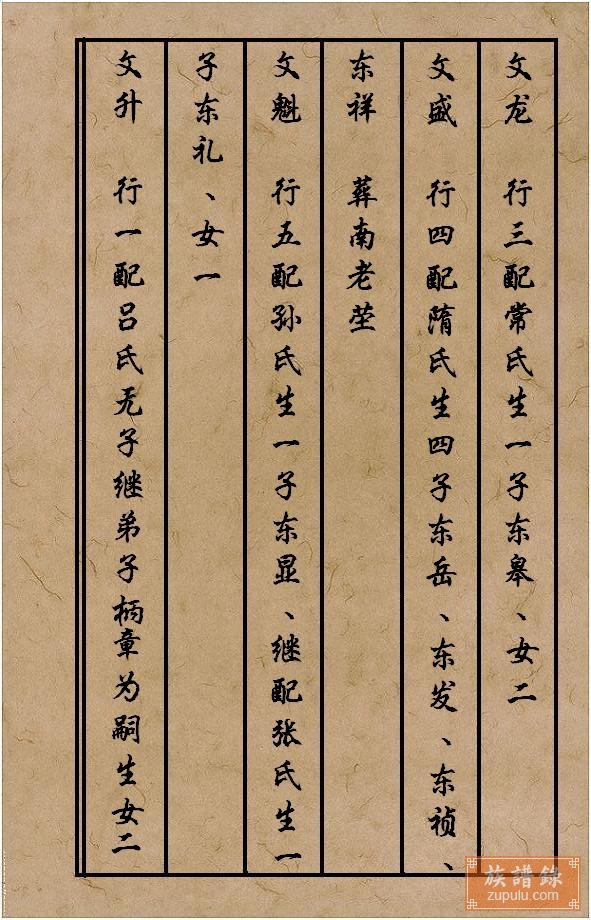 文龙 行三配常氏生一子东皋、女二
文盛 行四配隋氏生四子东岳、东发、东祯、
东祥 葬南老茔
文魁 行五配孙氏生一子东显、继配张氏生一
子东礼、女一
文升 行一配吕氏无子继弟子柄章为嗣生女二
族譜錄
zupulu.com